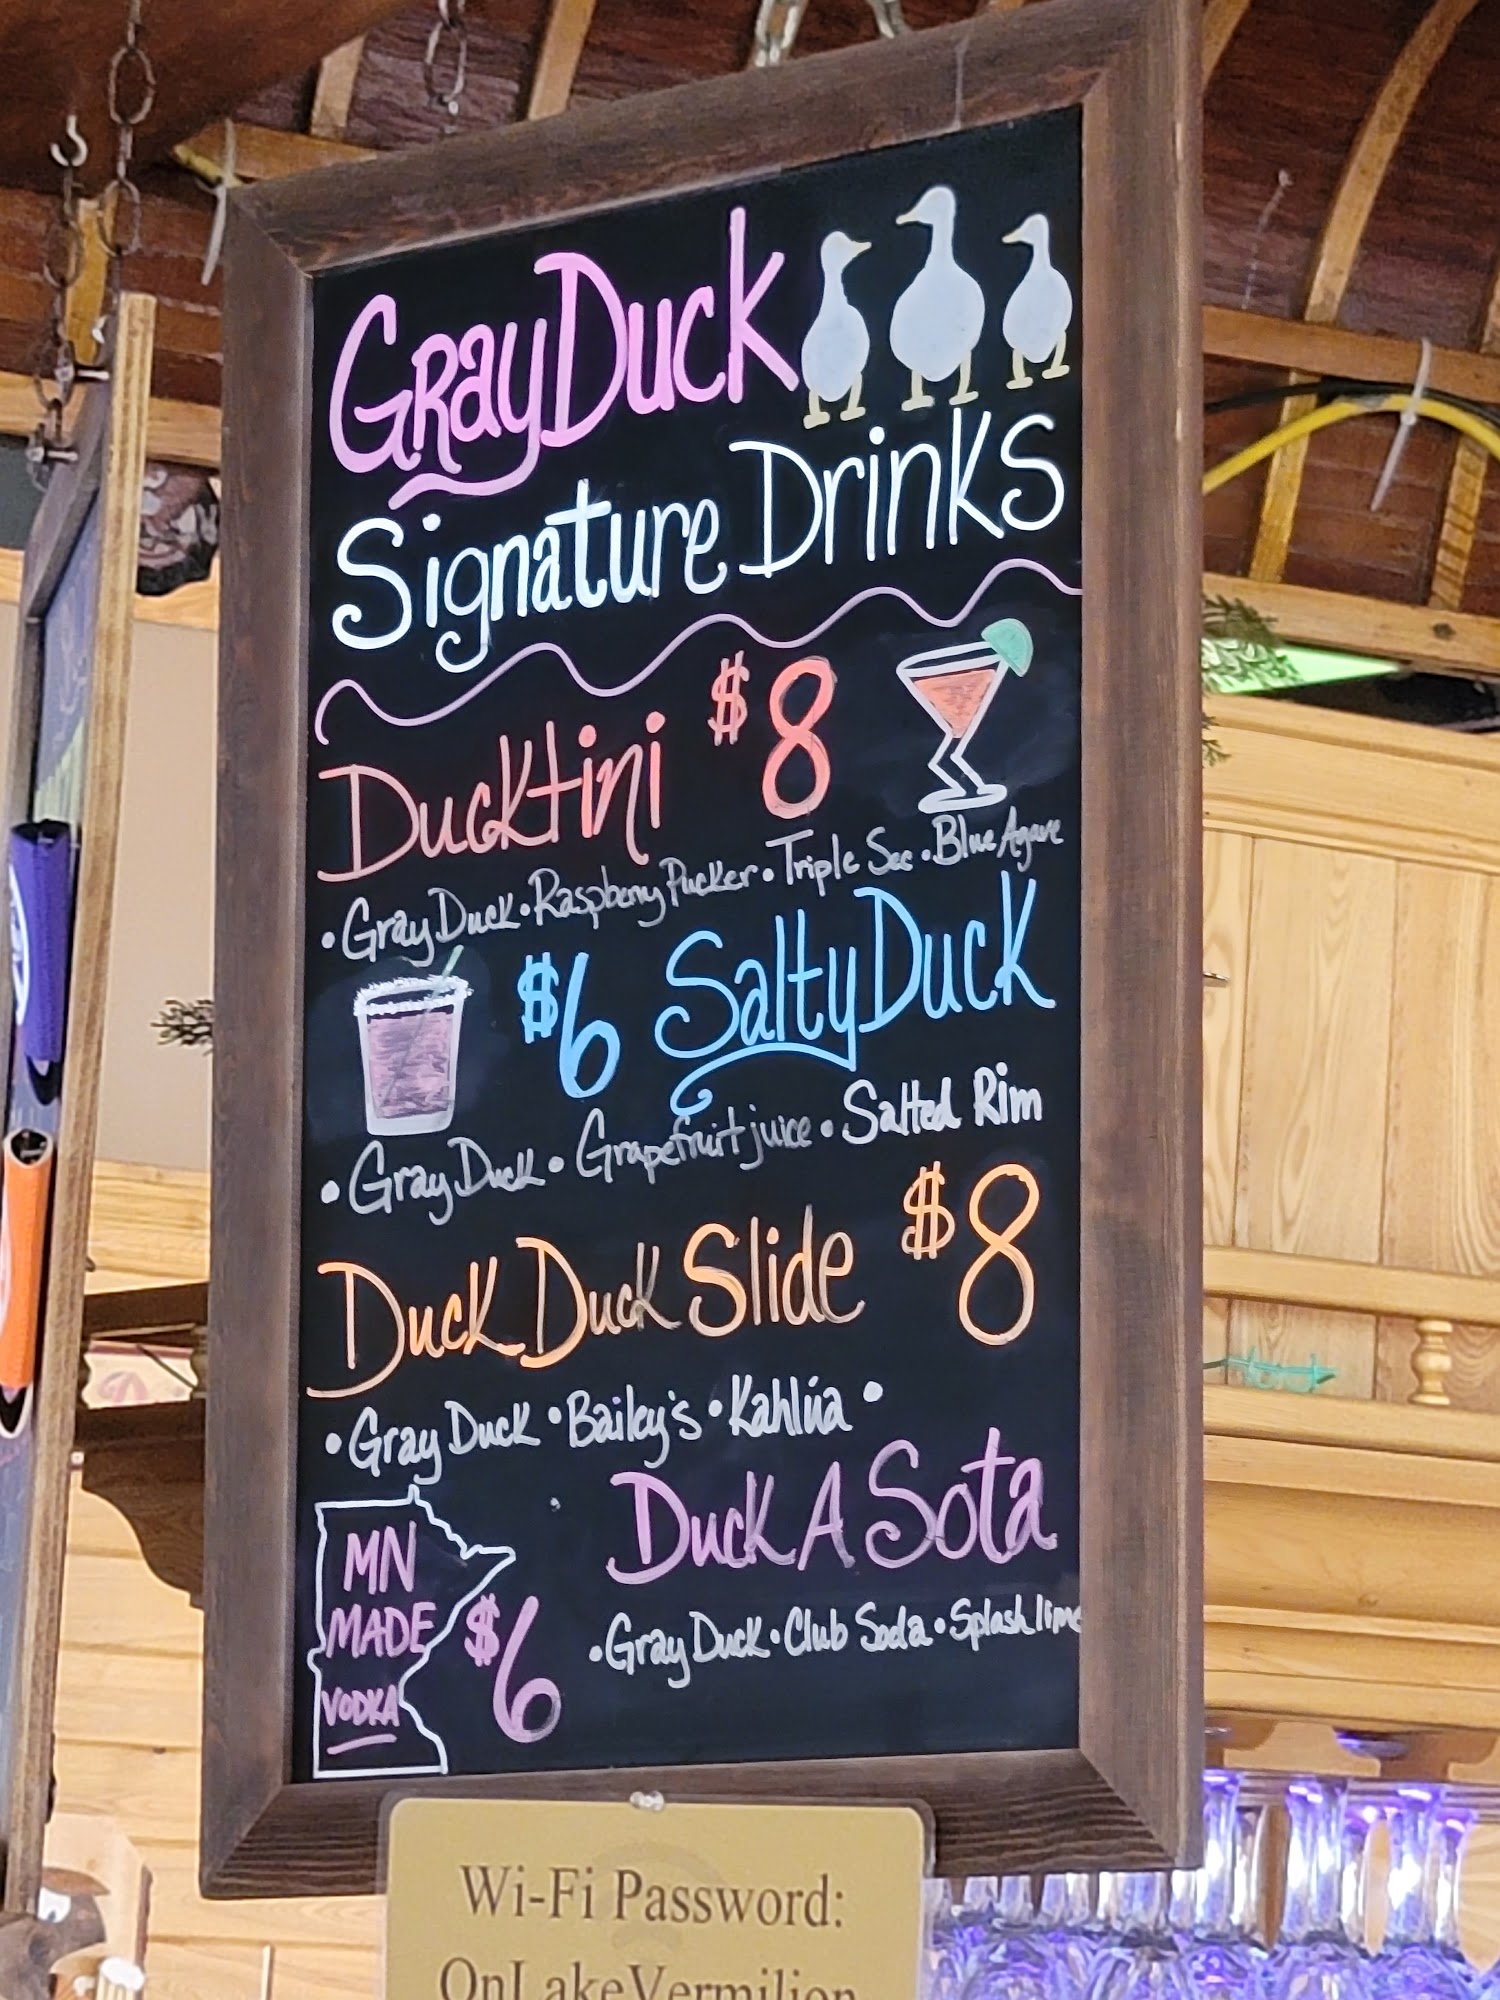 GrayDuck
Signature Drinks
Ducktini $8
• Gray Duck • Raspberry Pucker • Triple Sec • Blue Agave
$6 Salty Duck
• Gray Duck • Grapefruit juice • Salted Rim
Duck Duck Slide $8
• Gray Duck • Bailey's • Kahlúa •
Duck A Sota
MN
MADE
VODKA
$6
• Gray Duck • Club Soda • Splash lime
Wi-Fi Password:
OnLakeVermilion